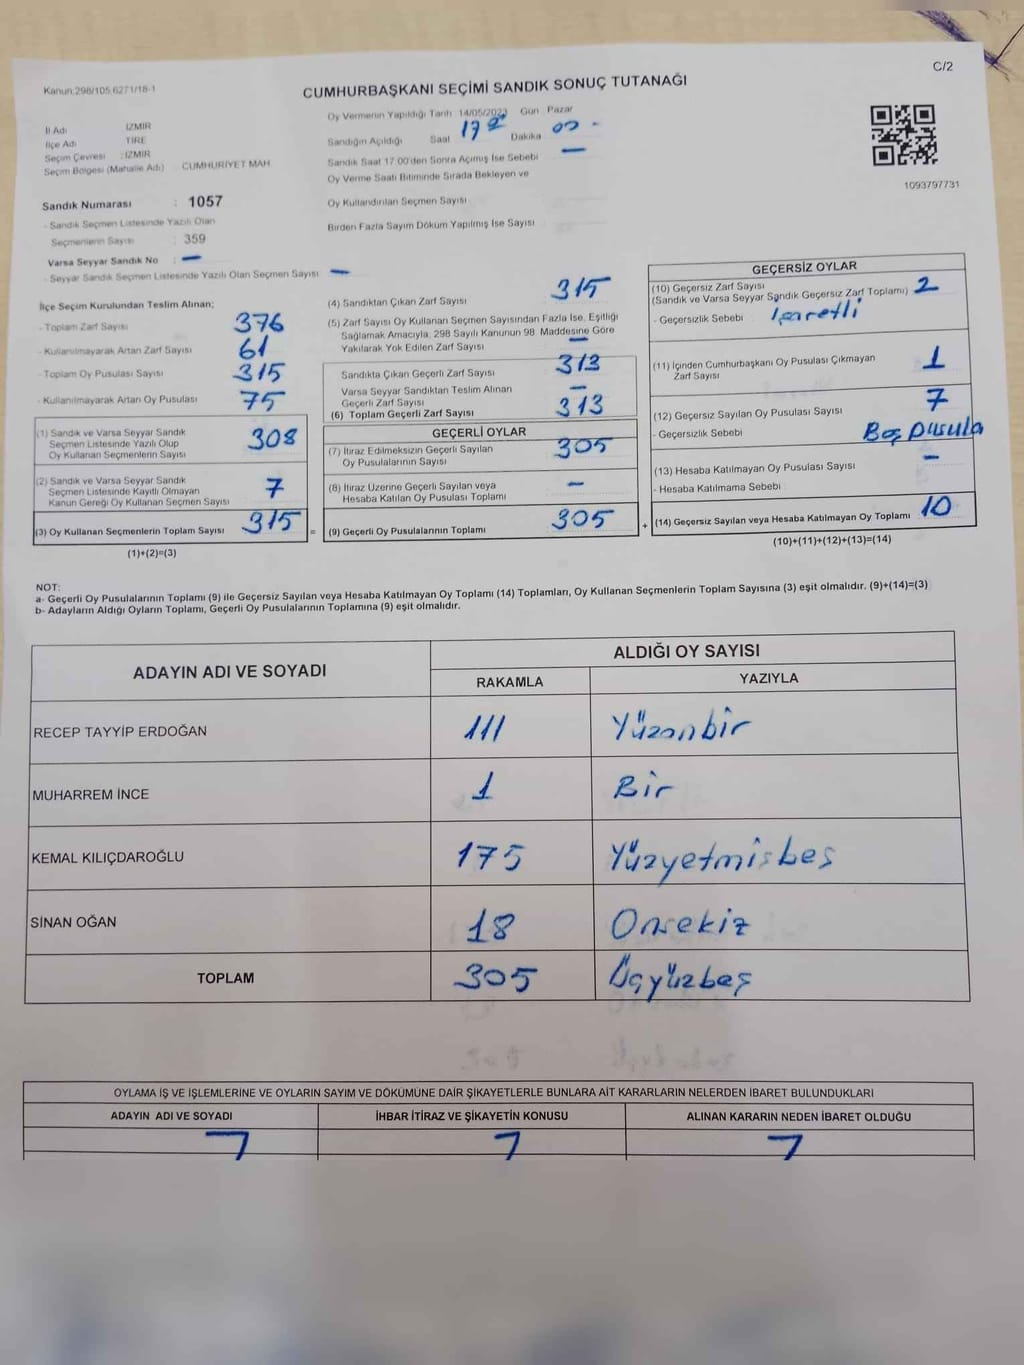 C/2
Kanun:298/105,6271/18-1
CUMHURBAŞKANI SEÇİMİ SANDIK SONUÇ TUTANAĞI
İl Adı İZMİR
İlçe Adı TİRE
Seçim Çevresi : İZMİR
Seçim Bölgesi (Mahalle Adı) : CUMHURİYET MAH
Sandık Numarası : 1057
- Sandık Seçmen Listesinde Yazılı Olan
Seçmenlerin Sayısı : 359
Varsa Seyyar Sandık No : -
- Seyyar Sandık Seçmen Listesinde Yazılı Olan Seçmen Sayısı : -
Oy Vermenin Yapıldığı Tarih 14/05/2023 Gün Pazar
Sandığın Açıldığı Saat 17 Dakika 00 -
Sandık Saat 17:00'den Sonra Açılmış İse Sebebi -
Oy Verme Saati Bitiminde Sırada Bekleyen ve
Oy Kullandırılan Seçmen Sayısı
Birden Fazla Sayım Döküm Yapılmış İse Sayısı
1093797731
İlçe Seçim Kurulundan Teslim Alınan;
- Toplam Zarf Sayısı 376
- Kullanılmayarak Artan Zarf Sayısı 61
- Toplam Oy Pusulası Sayısı 315
- Kullanılmayarak Artan Oy Pusulası 75
(1) Sandık ve Varsa Seyyar Sandık
Seçmen Listesinde Yazılı Olup
Oy Kullanan Seçmenlerin Sayısı 308
(2) Sandık ve Varsa Seyyar Sandık
Seçmen Listesinde Kayıtlı Olmayan
Kanun Gereği Oy Kullanan Seçmen Sayısı 7
(3) Oy Kullanan Seçmenlerin Toplam Sayısı 315 =
(1)+(2)=(3)
(4) Sandıktan Çıkan Zarf Sayısı 315
(5) Zarf Sayısı Oy Kullanan Seçmen Sayısından Fazla İse, Eşitliği
Sağlamak Amacıyla, 298 Sayılı Kanunun 98. Maddesine Göre
Yakılarak Yok Edilen Zarf Sayısı -
Sandıkta Çıkan Geçerli Zarf Sayısı 313
Varsa Seyyar Sandıktan Teslim Alınan
Geçerli Zarf Sayısı -
(6) Toplam Geçerli Zarf Sayısı 313
GEÇERLİ OYLAR
(7) İtiraz Edilmeksizin Geçerli Sayılan
Oy Pusulalarının Sayısı 305
(8) İtiraz Üzerine Geçerli Sayılan veya
Hesaba Katılan Oy Pusulası Toplamı -
(9) Geçerli Oy Pusulalarının Toplamı 305 +
GEÇERSİZ OYLAR
(10) Geçersiz Zarf Sayısı 2
(Sandık ve Varsa Seyyar Sandık Geçersiz Zarf Toplamı)
- Geçersizlik Sebebi İşaretli
(11) İçinden Cumhurbaşkanı Oy Pusulası Çıkmayan
Zarf Sayısı 1
(12) Geçersiz Sayılan Oy Pusulası Sayısı 7
- Geçersizlik Sebebi Boş pusula
(13) Hesaba Katılmayan Oy Pusulası Sayısı -
- Hesaba Katılmama Sebebi
(14) Geçersiz Sayılan veya Hesaba Katılmayan Oy Toplamı 10
(10)+(11)+(12)+(13)=(14)
NOT:
a- Geçerli Oy Pusulalarının Toplamı (9) ile Geçersiz Sayılan veya Hesaba Katılmayan Oy Toplamı (14) Toplamları, Oy Kullanan Seçmenlerin Toplam Sayısına (3) eşit olmalıdır. (9)+(14)=(3)
b- Adayların Aldığı Oyların Toplamı, Geçerli Oy Pusulalarının Toplamına (9) eşit olmalıdır.
ADAYIN ADI VE SOYADI ALDIĞI OY SAYISI
RAKAMLA YAZIYLA
RECEP TAYYİP ERDOĞAN 111 Yüzonbir
MUHARREM İNCE 1 Bir
KEMAL KILIÇDAROĞLU 175 Yüzyetmişbeş
SİNAN OĞAN 18 Onsekiz
TOPLAM 305 Üçyüzbeş
OYLAMA İŞ VE İŞLEMLERİNE VE OYLARIN SAYIM VE DÖKÜMÜNE DAİR ŞİKAYETLERLE BUNLARA AİT KARARLARIN NELERDEN İBARET BULUNDUKLARI
ADAYIN ADI VE SOYADI İHBAR İTİRAZ VE ŞİKAYETİN KONUSU ALINAN KARARIN NEDEN İBARET OLDUĞU